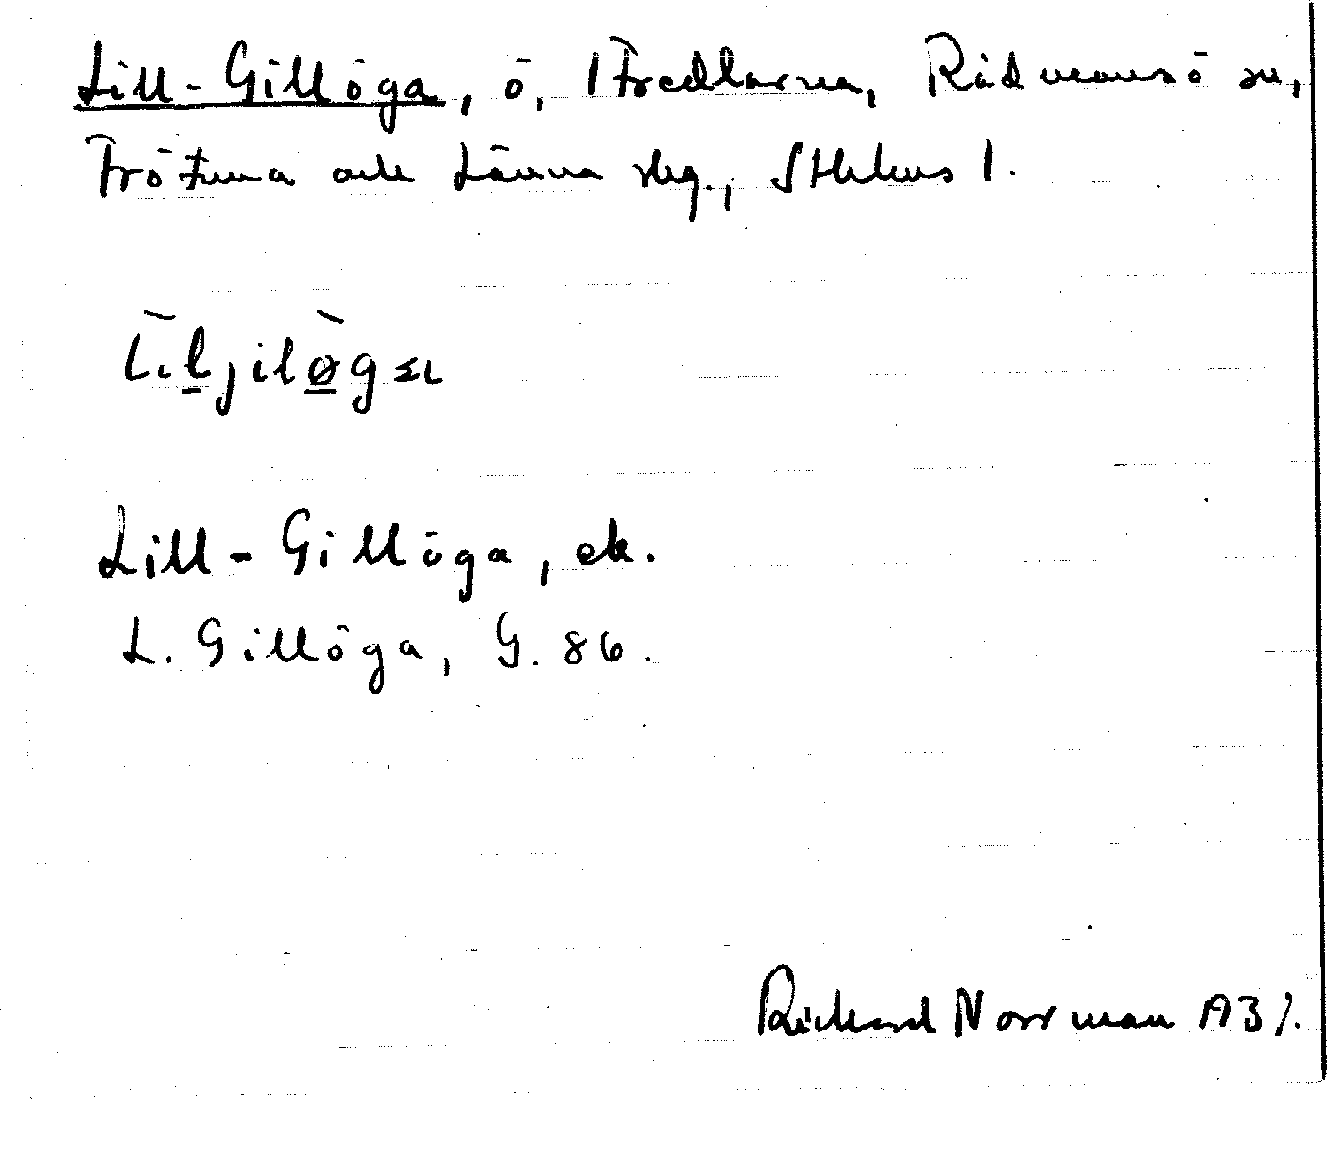 Lill-Gillöga, ö, Fredlarna, Rådmansö sn,
Frötuna och Länna skg., Sthlms l.
Lill-Gillöga, ek.
L. Gillöga, G. 86.
Rickard Norrman 1931.